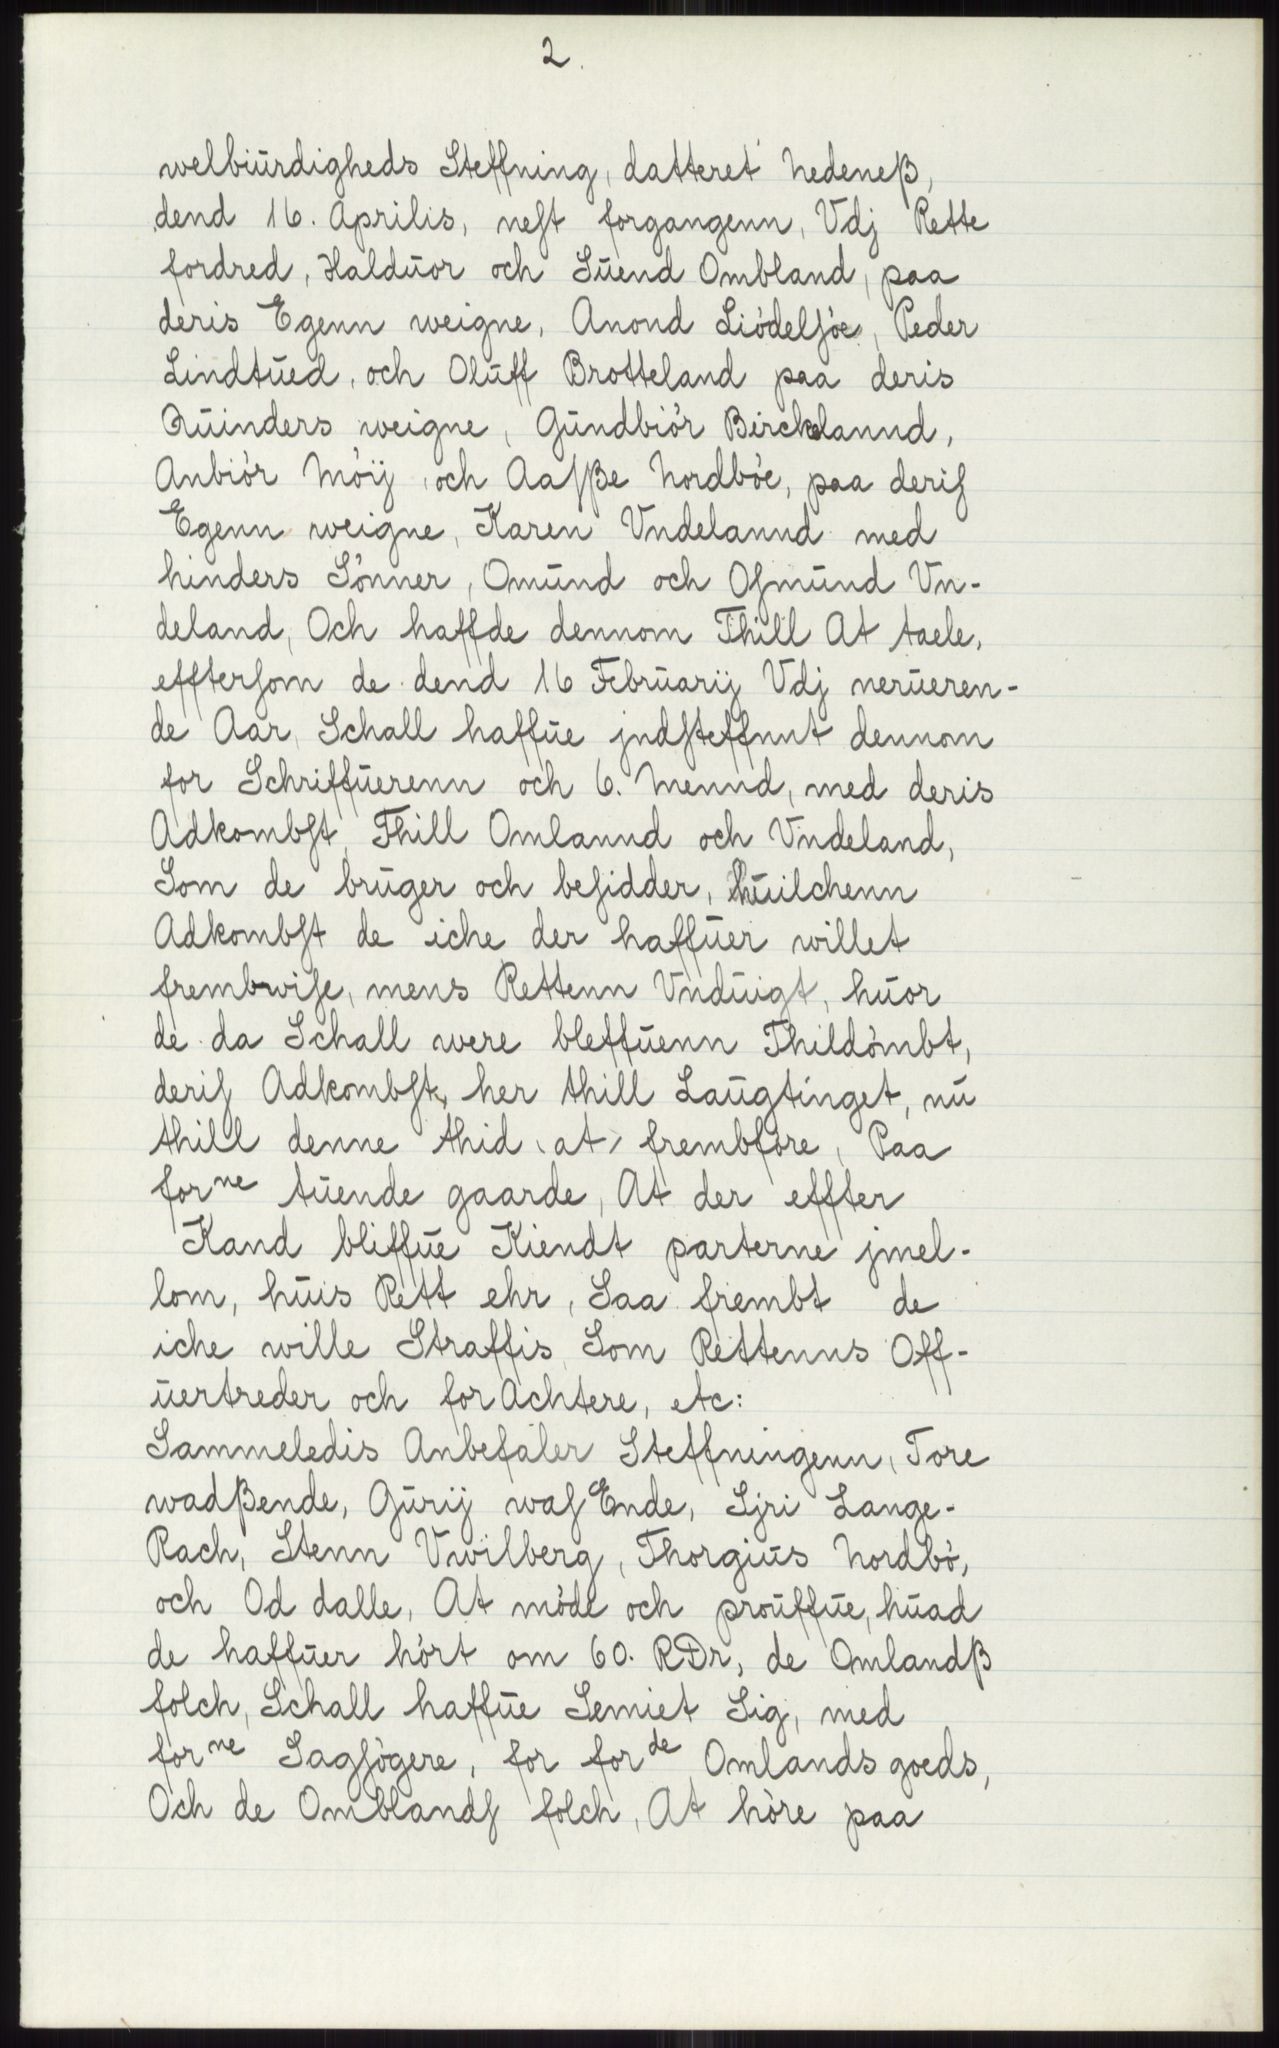 2.
welbiürdigheds Steffning, datteret Nedeneß,
dend 16. Aprilis, neſt forgangenn, Vdj Rette
fordred, Halduor och Süend Ombland, paa
deris Egenn weigne, Anond Liödelſöe, Peder
Lindtüed, och Olüff Brotteland paa deris
Qüinders weigne, Gündbiör Birckelannd,
Anbiör Möÿ, och Aaſße Nordböe, paa deriſ
Egenn weigne, Karen Vndelannd med
hinders Sönner, Omünd och Oſmünd Vn-
deland, Och haffde dennom Thill At taele,
efftersom de dend 16 Februarij Vdj nerüeren-
de Aar, Schall haffüe jndſteffnnt dennom
for Schriffüerenn och 6. Mennd, med deris
Adkombſt, Thill Omlannd och Vndeland,
Som de brüger och beſidder, hüilchenn
Adkombſt de iche der haffüer willet
frembwiſe, mens Rettenn Vndüigt, hüor
de da Schall were bleffüenn Thildömbt,
deriſ Adkombſt, her thill Laügtinget, nü
thill denne thid, at frembföre, Paa
forne tüende gaarde, At der effter
Kand bliffüe Kiendt parterne jmel-
lom, hüis Rett ehr, Saa frembt de
iche wille Straffis, Som Rettenns Off-
üertreder och forAchtere, etc:
Sammeledis Anbefaler Steffningenn, Tore
wadßende, Gürij waſEnde, Sjri Lange-
Rach, Stenn Vwilberg, Thorgiüs Nordbö,
och Od dalle, At möde och proüffüe, hüad
de haffüer hört om 60. RDr, de Omlandß
folch, Schall haffüe Lemiet Sig, med
forne Sagſögere, for forde Omlands goeds,
Och de Omblandſ folch, At höre paa